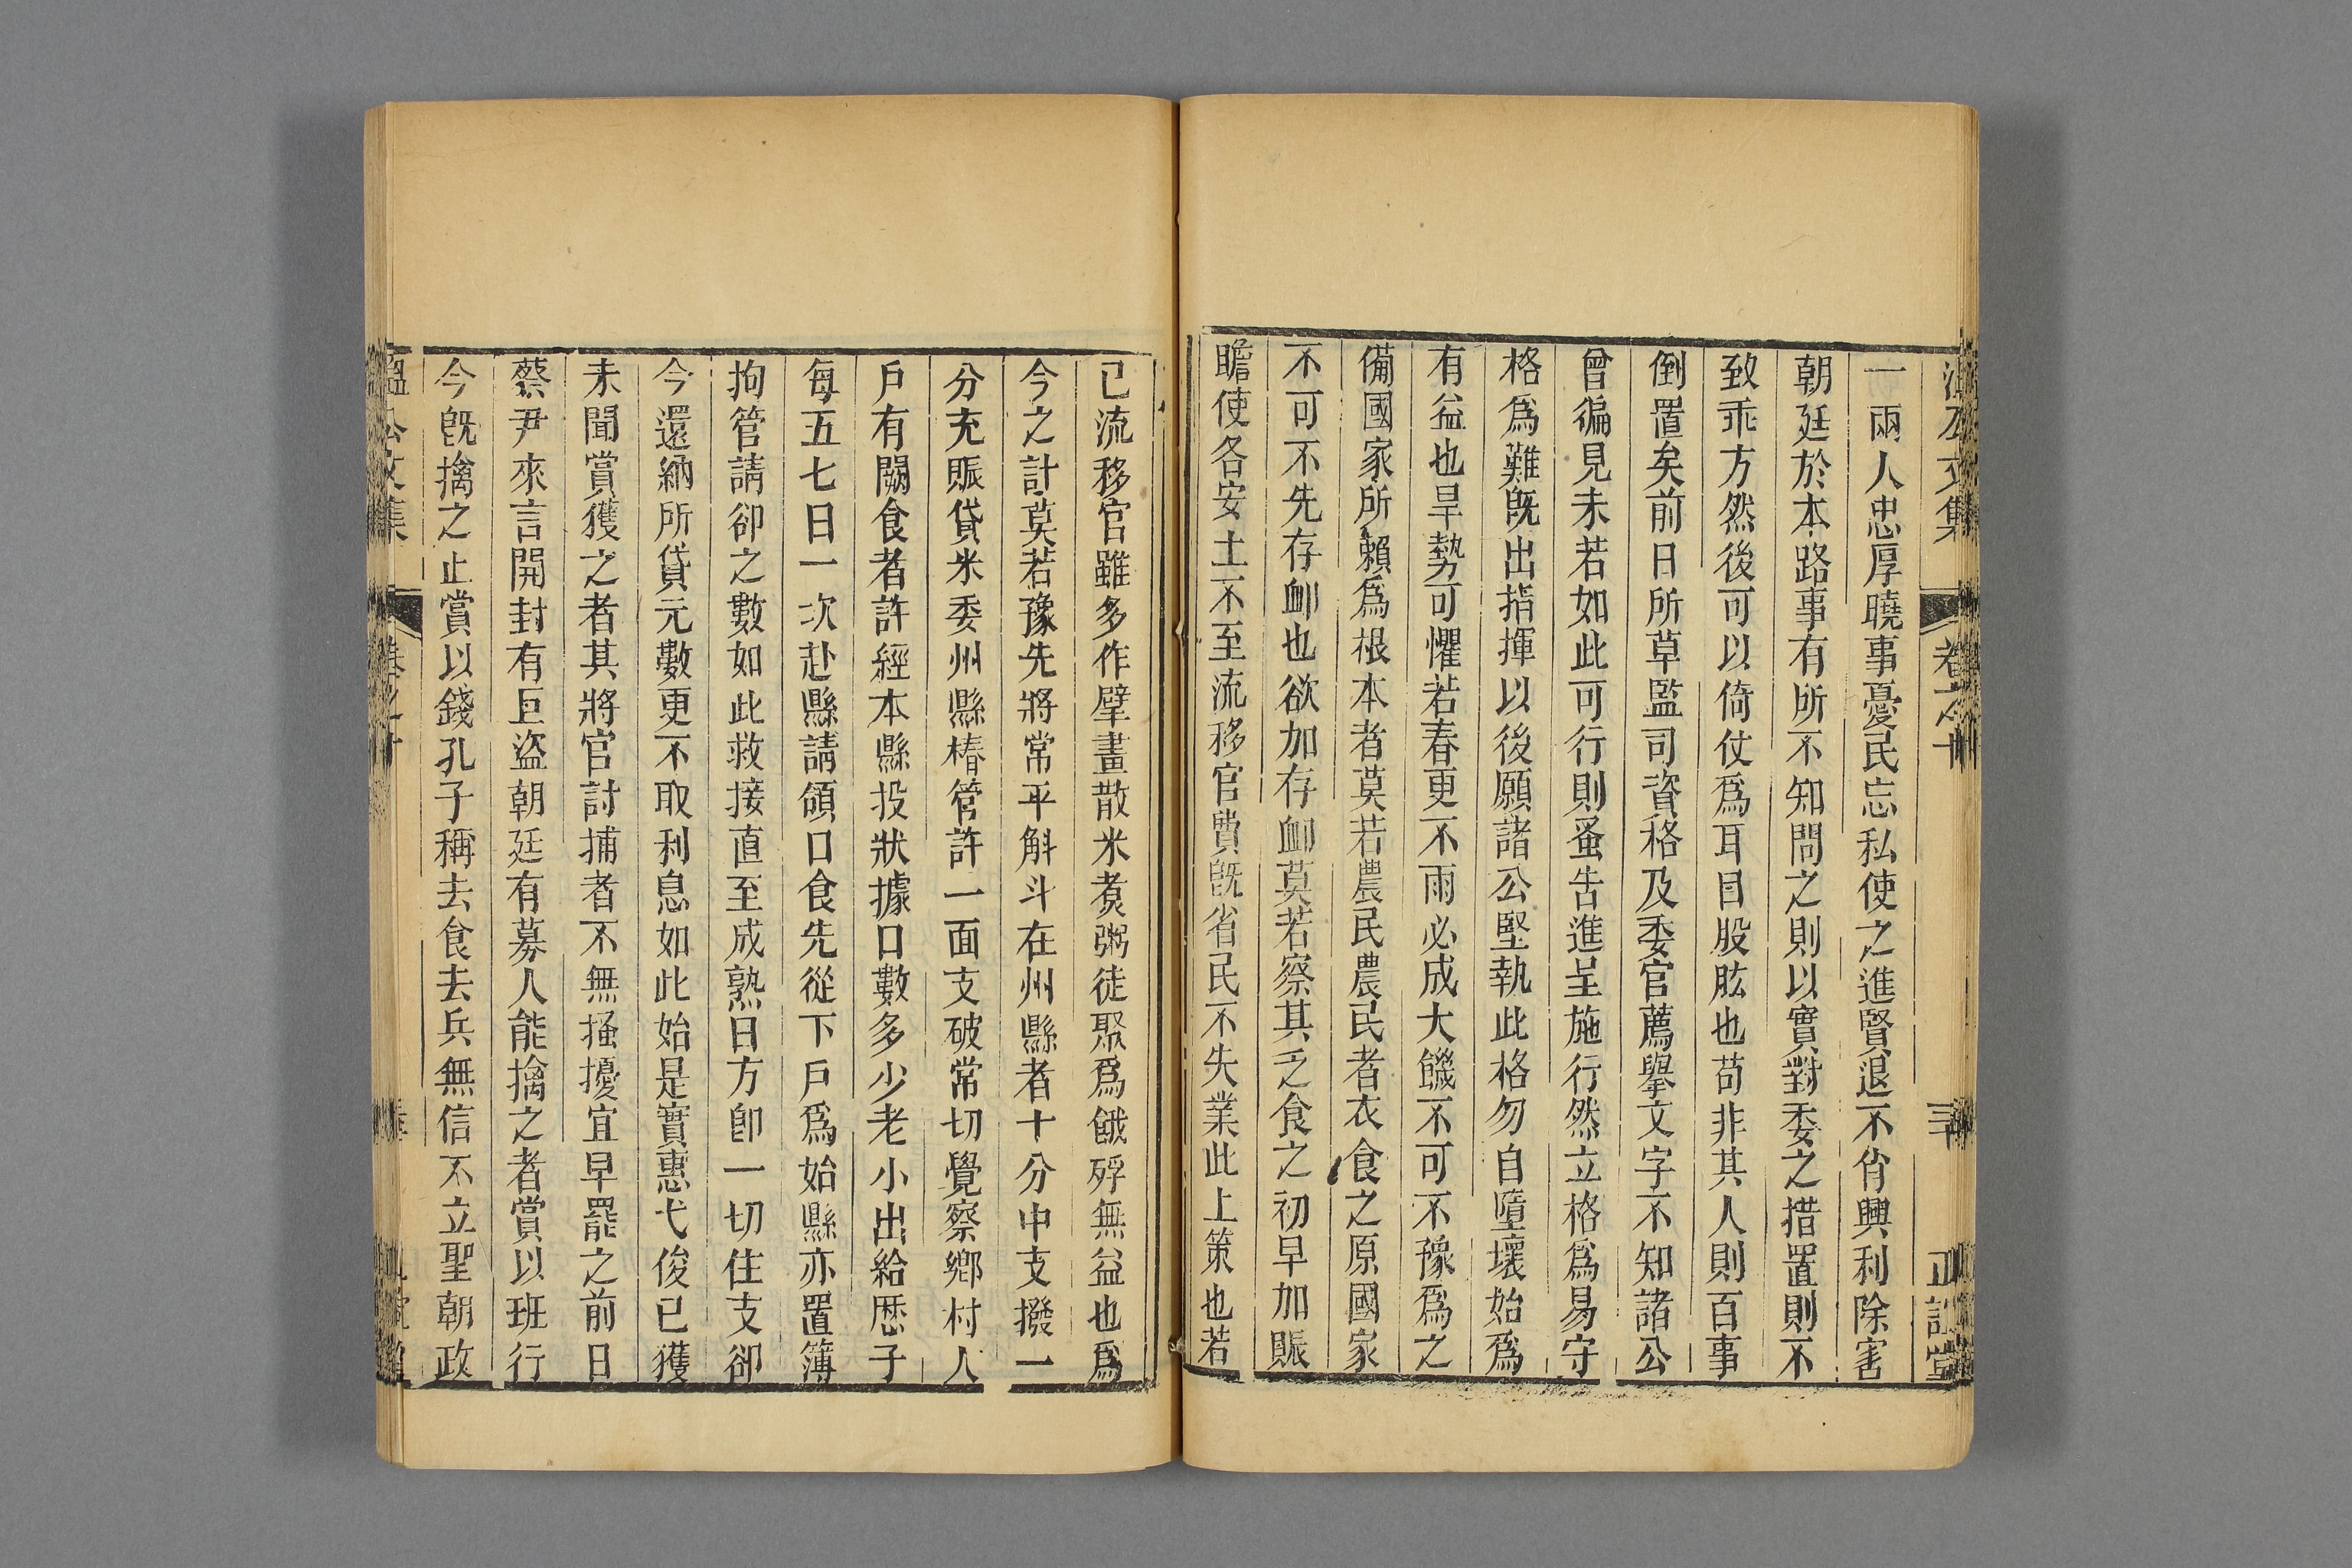 一兩人忠厚曉事憂民忘私使之進賢退不肖興利除害
朝廷於本路事有所不知問之則以實對委之措置則不
致乖方然後可以倚仗爲耳目股肱也苟非其人則百事
倒置矣前日所草監司資格及委官薦舉文字不知諸公
曾徧見未若如此可行則蚤告進呈施行然立格爲易守
格爲難旣出指揮以後願諸公堅執此格勿自墮壞始爲
有益也旱勢可懼若春更不雨必成大饑不可不豫爲之
備國家所賴爲根本者莫若農民農民者衣食之原國家
不可不先存卹也欲加存卹莫若察其乏食之初早加賑
贍使各安土不至流移官費旣省民不失業此上策也若
已流移官雖多作擘畫散米煑粥徒聚爲餓殍無益也爲
今之計莫若豫先將常平斛斗在州縣者十分中支撥一
分充賑貸米委州縣樁管許一面支破常切覺察鄉村人
戶有闕食者許經本縣投狀據口數多少老小出給歷子
每五七日一次赴縣請領口食先從下戶爲始縣亦置簿
拘管請卻之數如此救接直至成熟日方卽一切住支卻
今還納所貸元數更不取利息如此始是實惠弋俊已獲
未聞賞獲之者其將官討捕者不無搔擾宜早罷之前日
蔡尹來言開封有巨盜朝廷有募人能擒之者賞以班行
今旣擒之止賞以錢孔子稱去食去兵無信不立聖朝政
溫公文集